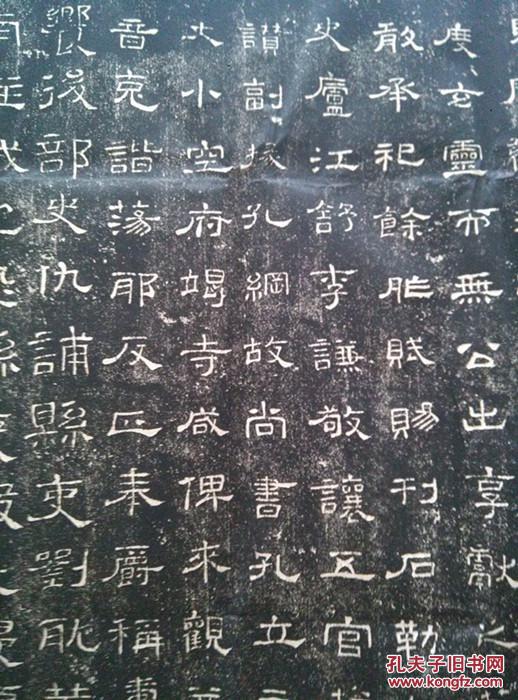 度玄靈而無公出享獻之
敢承祀餘胙賦賜刊石勒
史廬江舒李謙敬讓五官
讃副掾孔綱故尚書孔立
大小空府竭寺咸俾來觀
音克諧蕩耶反正奉爵稱壽
饗後部史仇誧縣吏劉耽等
孔夫子旧书网
www.kongfz.com